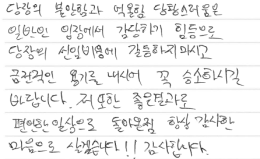 당장의 불안함과 억울함 당황스러움은
일반인 입장에서 감당하기 힘듬으로
당장의 선임비용에 갈등하지마시고
금전적인 용기로 내시어 꼭 승소하시길
바랍니다. 저 또한 좋은결과로
편안한 일상으로 돌아온점 항상 감사한
마음으로 살겠습니다!! 감사합니다.